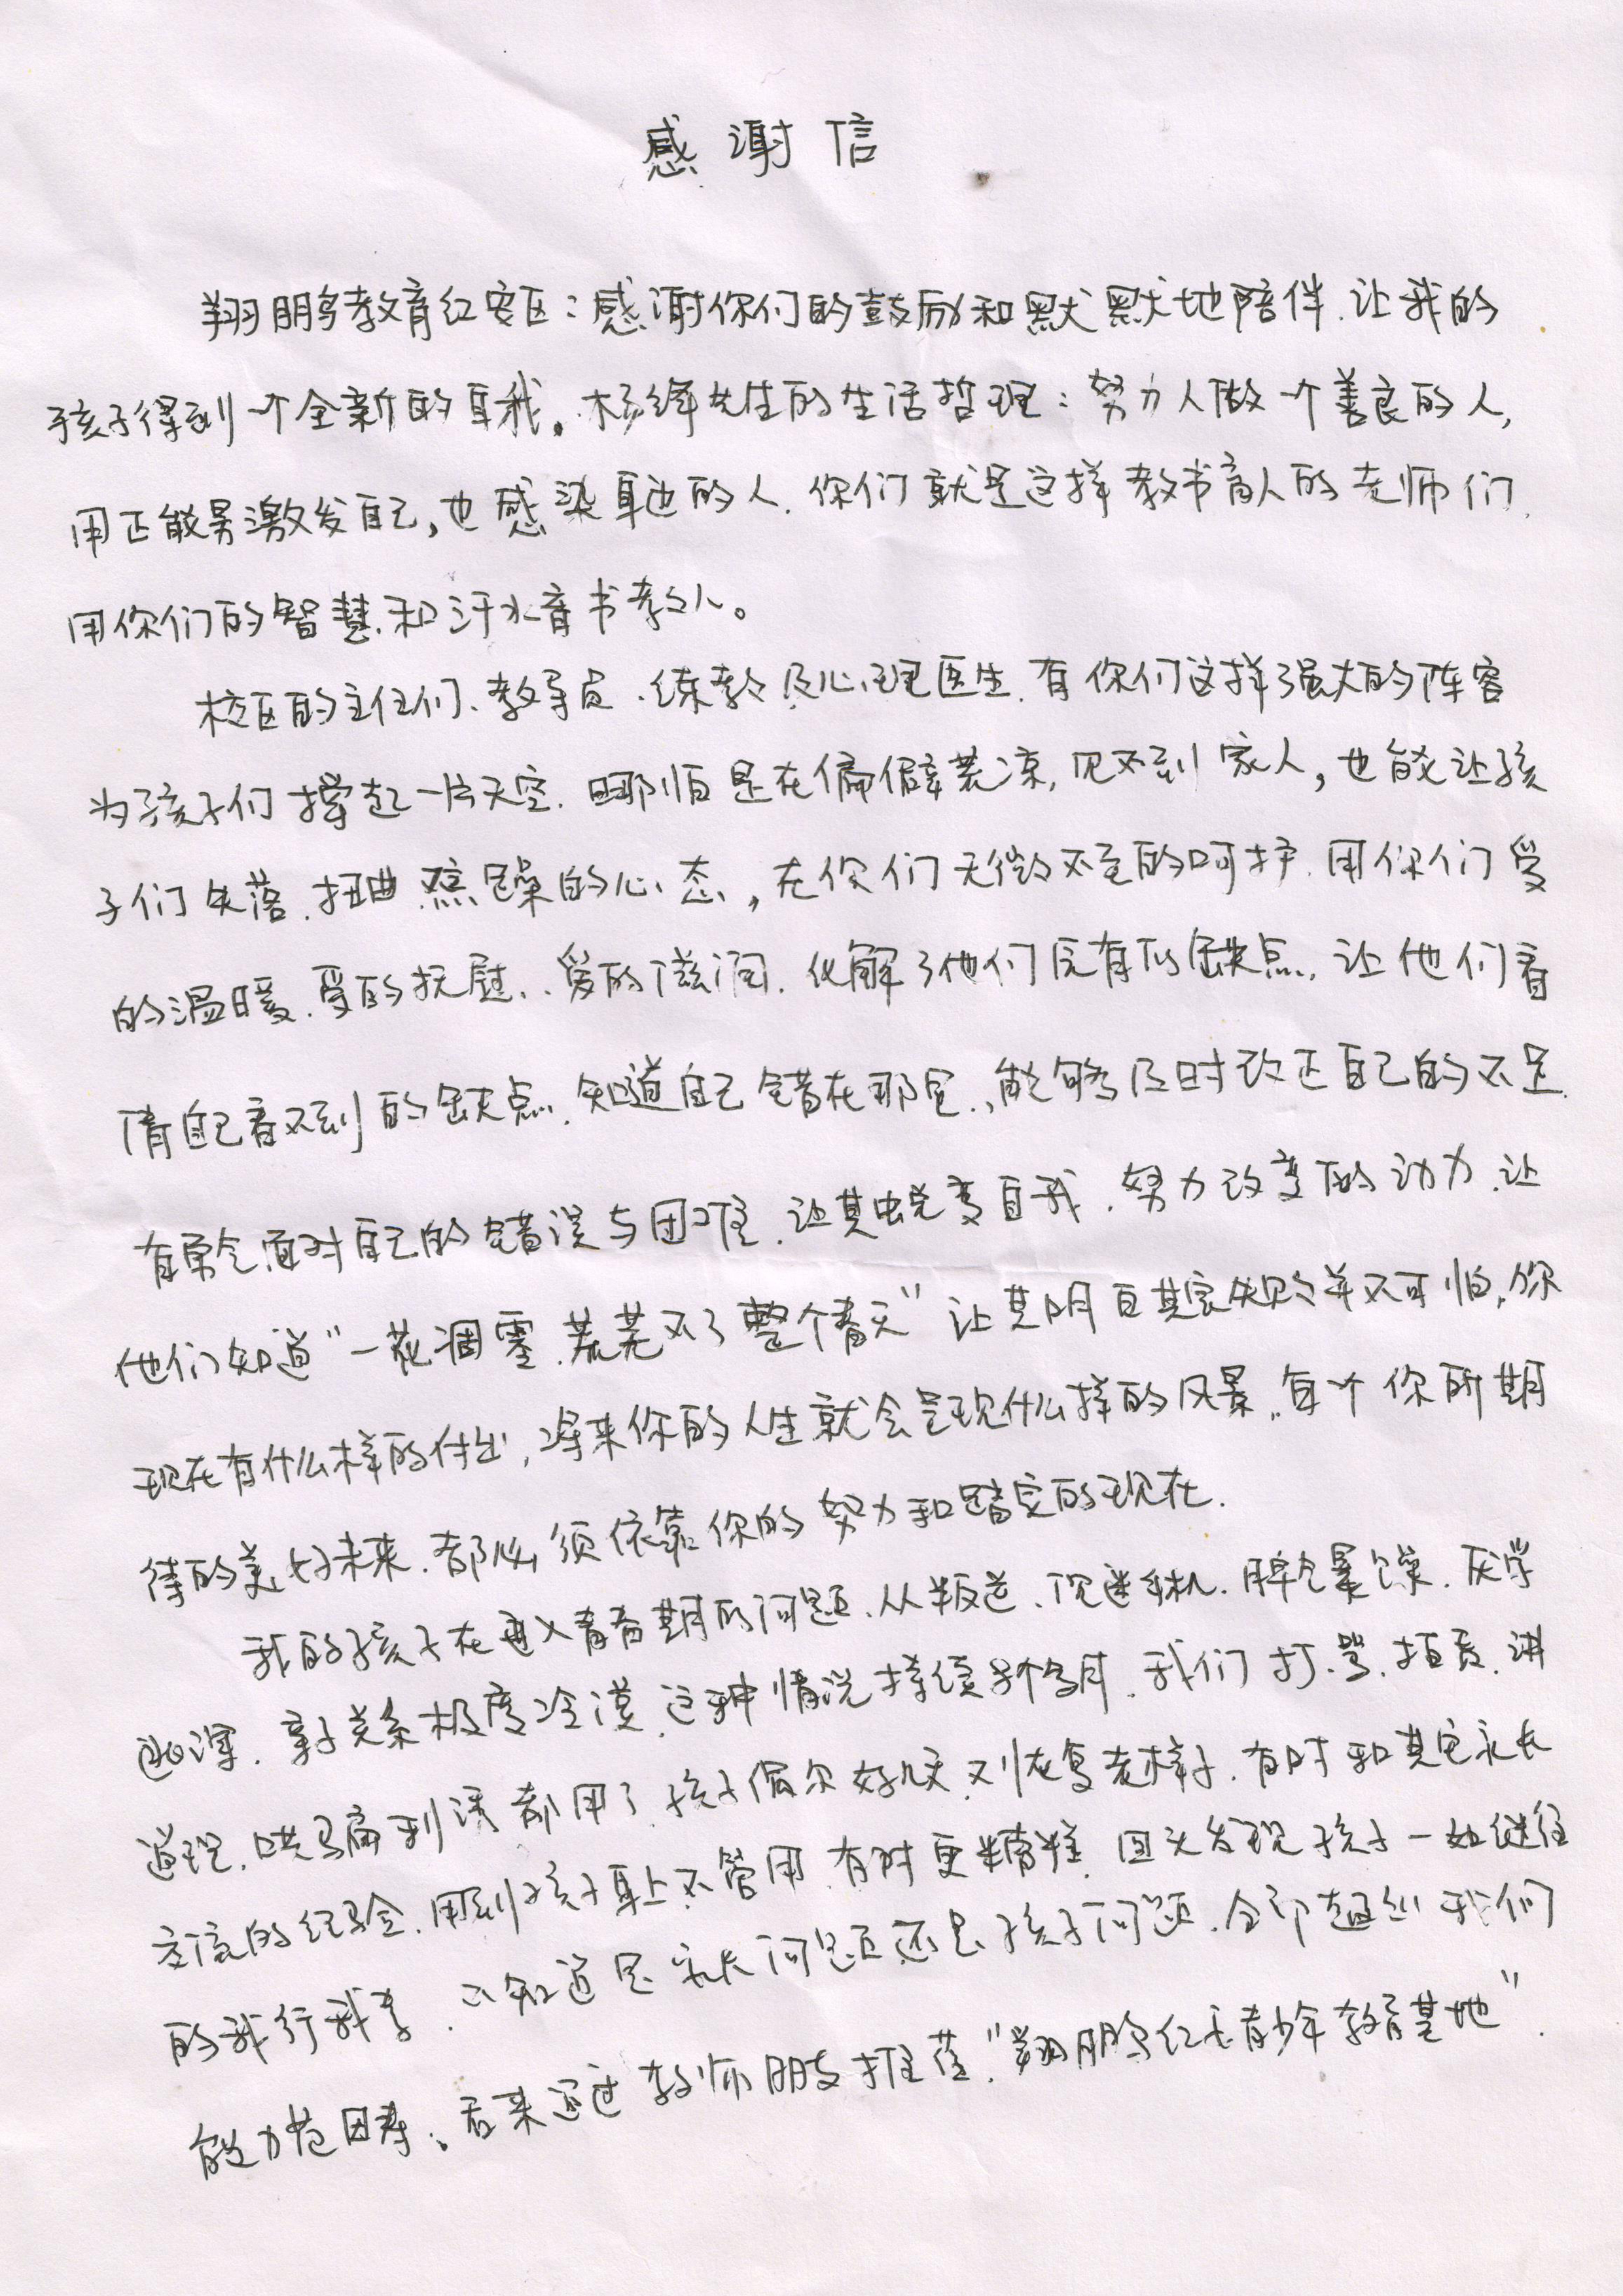 感谢信
翔鹏教育红安区:感谢你们的鼓励和默默地陪伴.让我的
孩子得到一个全新的自我。杨绛先生的生活哲理:努力人做一个善良的人,
用正能量激发自己,也感染身边的人.你们就是这样教书育人的老师们.
用你们的智慧.和汗水育书教人。
校区的主任们、教导员.练教及心理医生.有你们这样强大的阵容
为孩子们撑起一片天空.哪怕是在偏僻荒凉,见不到家人,也能让孩
子们失落.扭曲.焦躁的心态,在你们无微不至的呵护.用你们爱
的温暖.爱的抚慰、爱的滋润.化解了他们原有的缺点.让他们看
清自己看不到的缺点.知道自己错在那里.能够及时改正自己的不足.
有勇气面对自己的错误与困难.让其蜕变自我.努力改变的动力.让
他们知道"一花凋零.荒芜不了整个春天"让其明白其实失败并不可怕.你
现在有什么样的付出,将来你的人生就会呈现什么样的风景.每个你所期
待的美好未来.都必须依靠你的努力和踏实的现在.
我的孩子在进入青春期的问题.从叛逆.沉迷手机.脾气暴躁.厌学
逃课.亲子关系极度冷漠.这种情况持续个多月.我们打.骂.指责.讲
道理.哄骗利诱都用了.孩子偶尔好几天.又恢复老样子.有时和其它家长
交流的经验.用到孩子身上不管用.有时更糟糕.回头发现孩子一如继往
的我行我素.不知道是家长问题还是孩子问题.全部超出我们
能力范围.后来通过教师朋友推荐."翔鹏红安青少年教育基地".